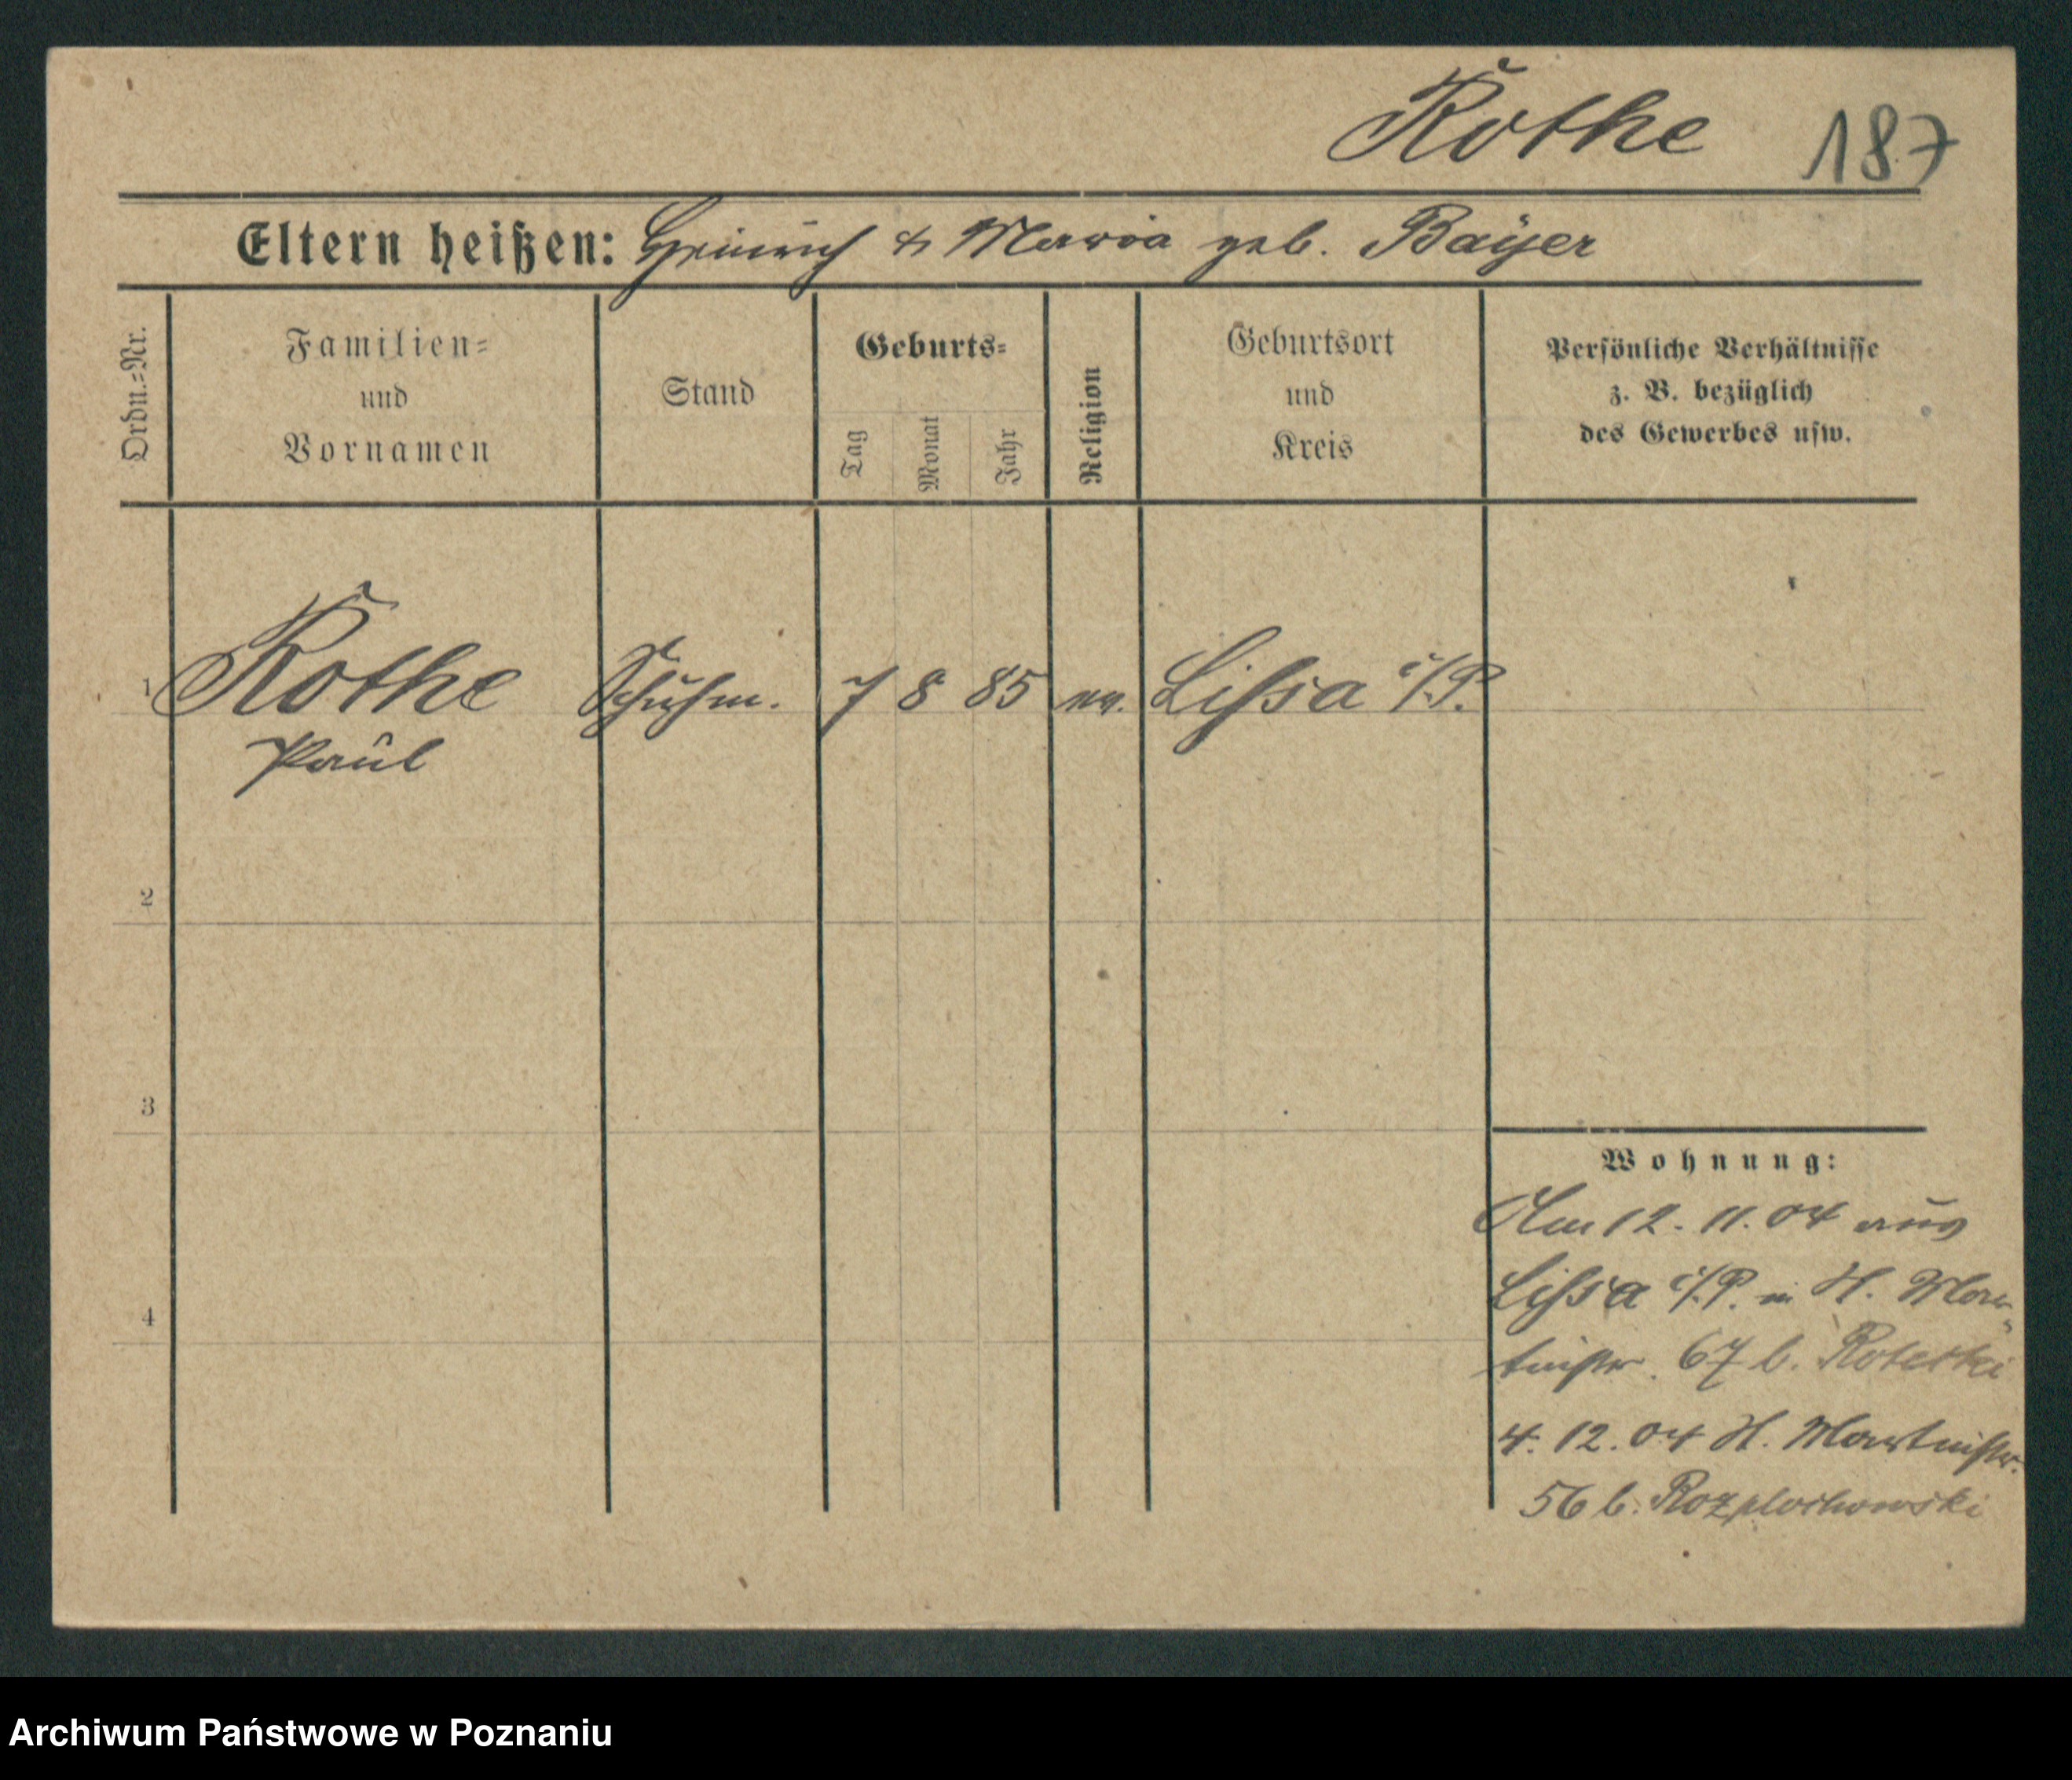 Rothe 187
Eltern heißen: Heinrich & Maria geb. Bayer
Ordn.=Nr.
Familien=
und
Vornamen
Stand
Geburts=
Tag
Monat
Jahr
Religion
Geburtsort
und
Kreis
Persönliche Verhältnisse
z. B. bezüglich
des Gewerbes usw.
1 Rothe Schuhm. 7 8 85 ev. Lissa i/P.
Paul
2
3
4
Wohnung:
Am 12. 11. 04 aus
Lissa i/P. n. H. Mar-
tinstr. 67 b.
4. 12. 04 H. Martinstr.
56 b. Rozplochowski
Archiwum Państwowe w Poznaniu